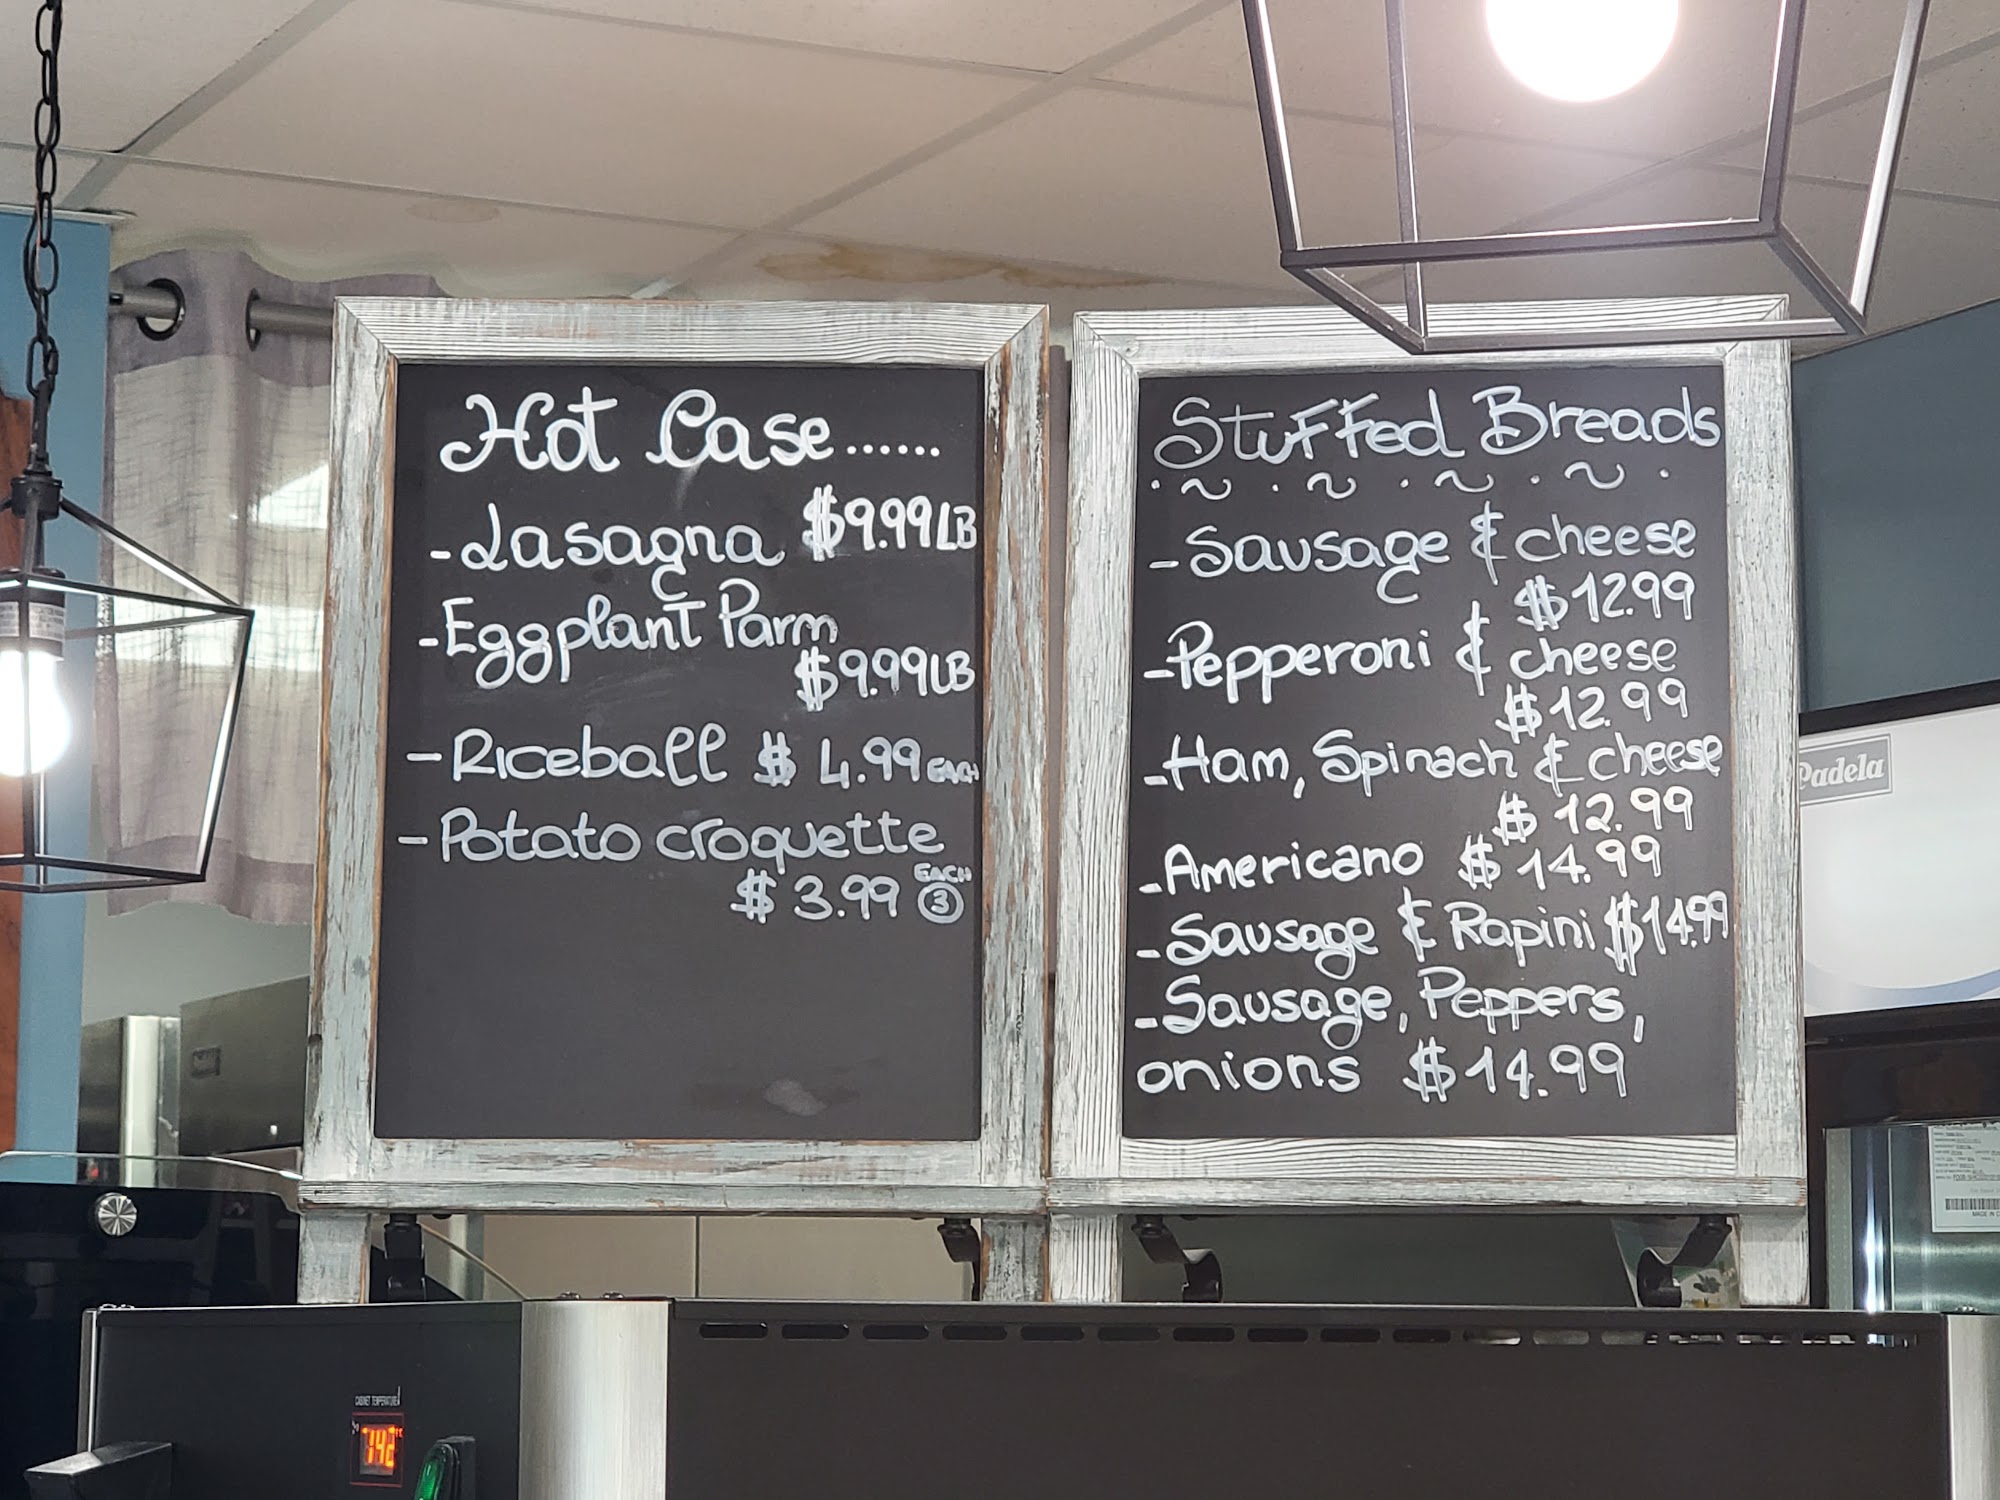 Hot Case......
-Lasagna $9.99LB
-Eggplant Parm
$9.99LB
-Riceball $4.99 EACH
-Potato croquette
$3.99 EACH
3
Stuffed Breads
-Sausage & cheese
$12.99
-Pepperoni & cheese
$12.99
-Ham, Spinach & cheese
$12.99
-Americano $14.99
-Sausage & Rapini $14.99
-Sausage, Peppers,
onions $14.99
Padela
CABINET TEMPERATURE
142